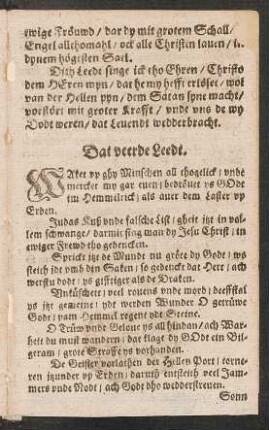 ewige Fröuwd / dar dy mit grotem Schall /
Engel allthomahl / ock alle Christen lauen / in
dynem högesten Saal.
Dith Leedt singe ick tho Ehren / Christo
dem HEren myn / dat he my hefft erlöset / wol
van der Hellen pyn / dem Satan syne macht /
vorstört mit groter Krafft / vnde vns de wy
Dodt weren / dat Leuendt wedderbracht.
Dat veerde Leedt.
WAket vp ghy Minschen all thogelick / vnde
mercket my gar euen / bedröuet ys GOdt
im Hemmelrick / als auer dem Laster vp
Erden.
Judas Kuß vnde falsche List / gheit itzt in vol-
lem schwange / darmit sing wan dy Jesu Christ / in
ewiger Frewd tho gedencken.
Sprickt itzt de Mundt nu gröte dy Godt / ws
steith idt vmb din Saken / so gedenckt dat Herr / ach
werstu dodt / ys gifftiger als de Draken.
Vnküscheit / veel rouens vnde mord / deeffstal
ys itzt gemeine / ydt werden Wunder O getrüwe
Godt / vam Hemmel regent ydt Steine.
O Trüw vnde Geloue ys all hindan / ach War-
heit du must wandern / dat klage dy GOdt ein Bil-
gram / grote Straffe ys vorhanden.
De Geister vorlathen der Hellen Port / torne-
ren itzunder vp Erden / daruth entsteith veel Jam-
mers vnde Nodt / ach Godt dho wedderstreuen.
Sonn